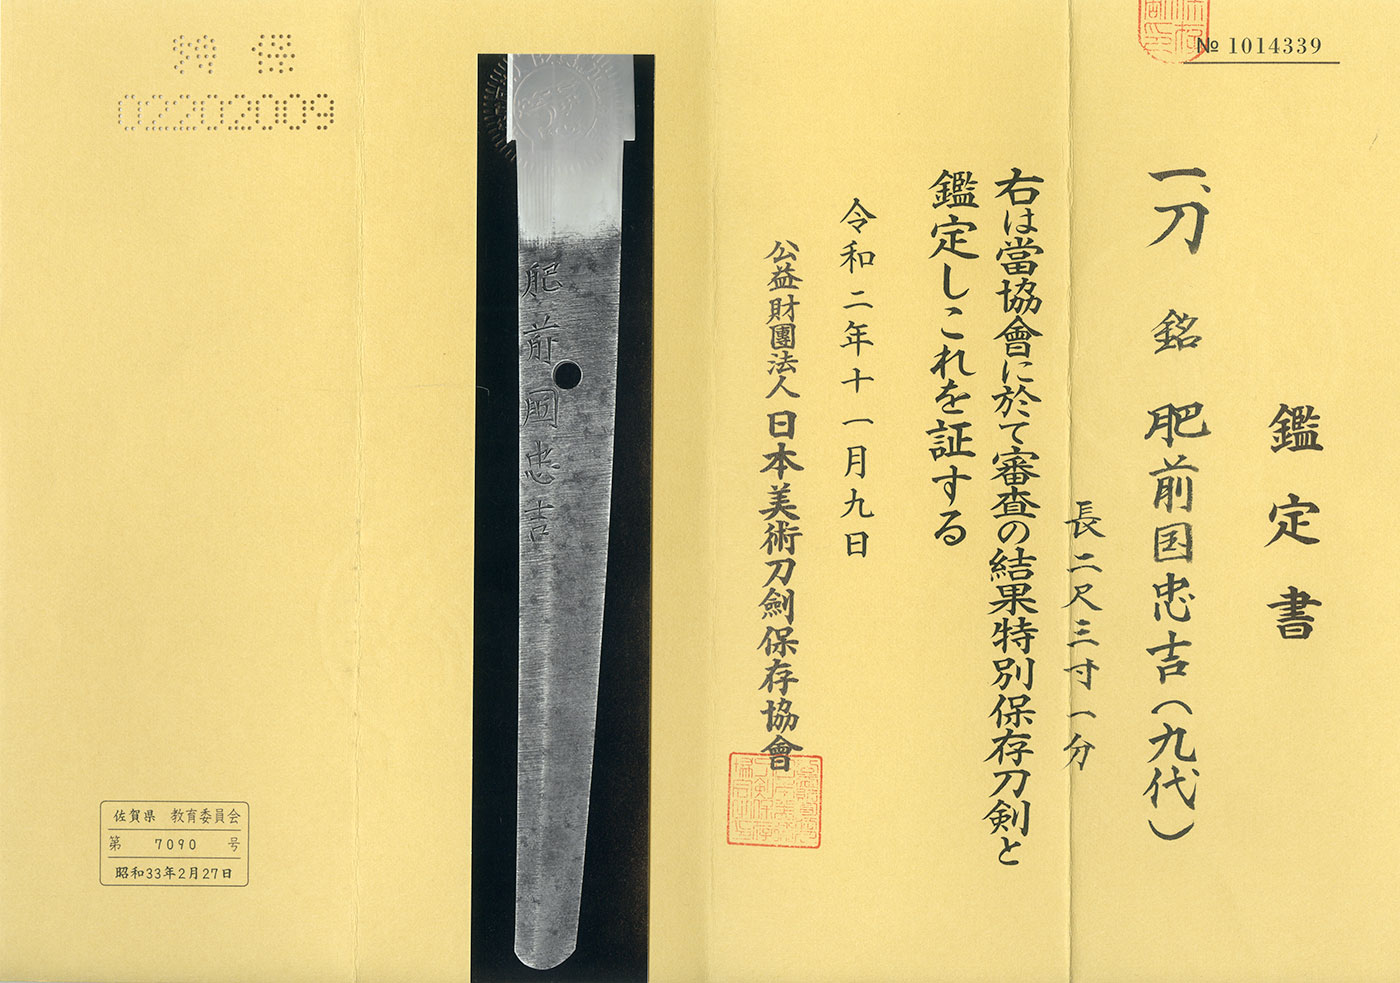 № 1014339
鑑定書
一、刀 銘 肥前国忠吉(九代)
長二尺三寸一分
右は當協會に於て審査の結果特別保存刀剣と
鑑定しこれを証する
令和二年十一月九日
公益財團法人 日本美術刀劍保存協會
肥前國忠吉
特 保
02202009
佐賀県 教育委員会
第 7090 号
昭和33年2月27日